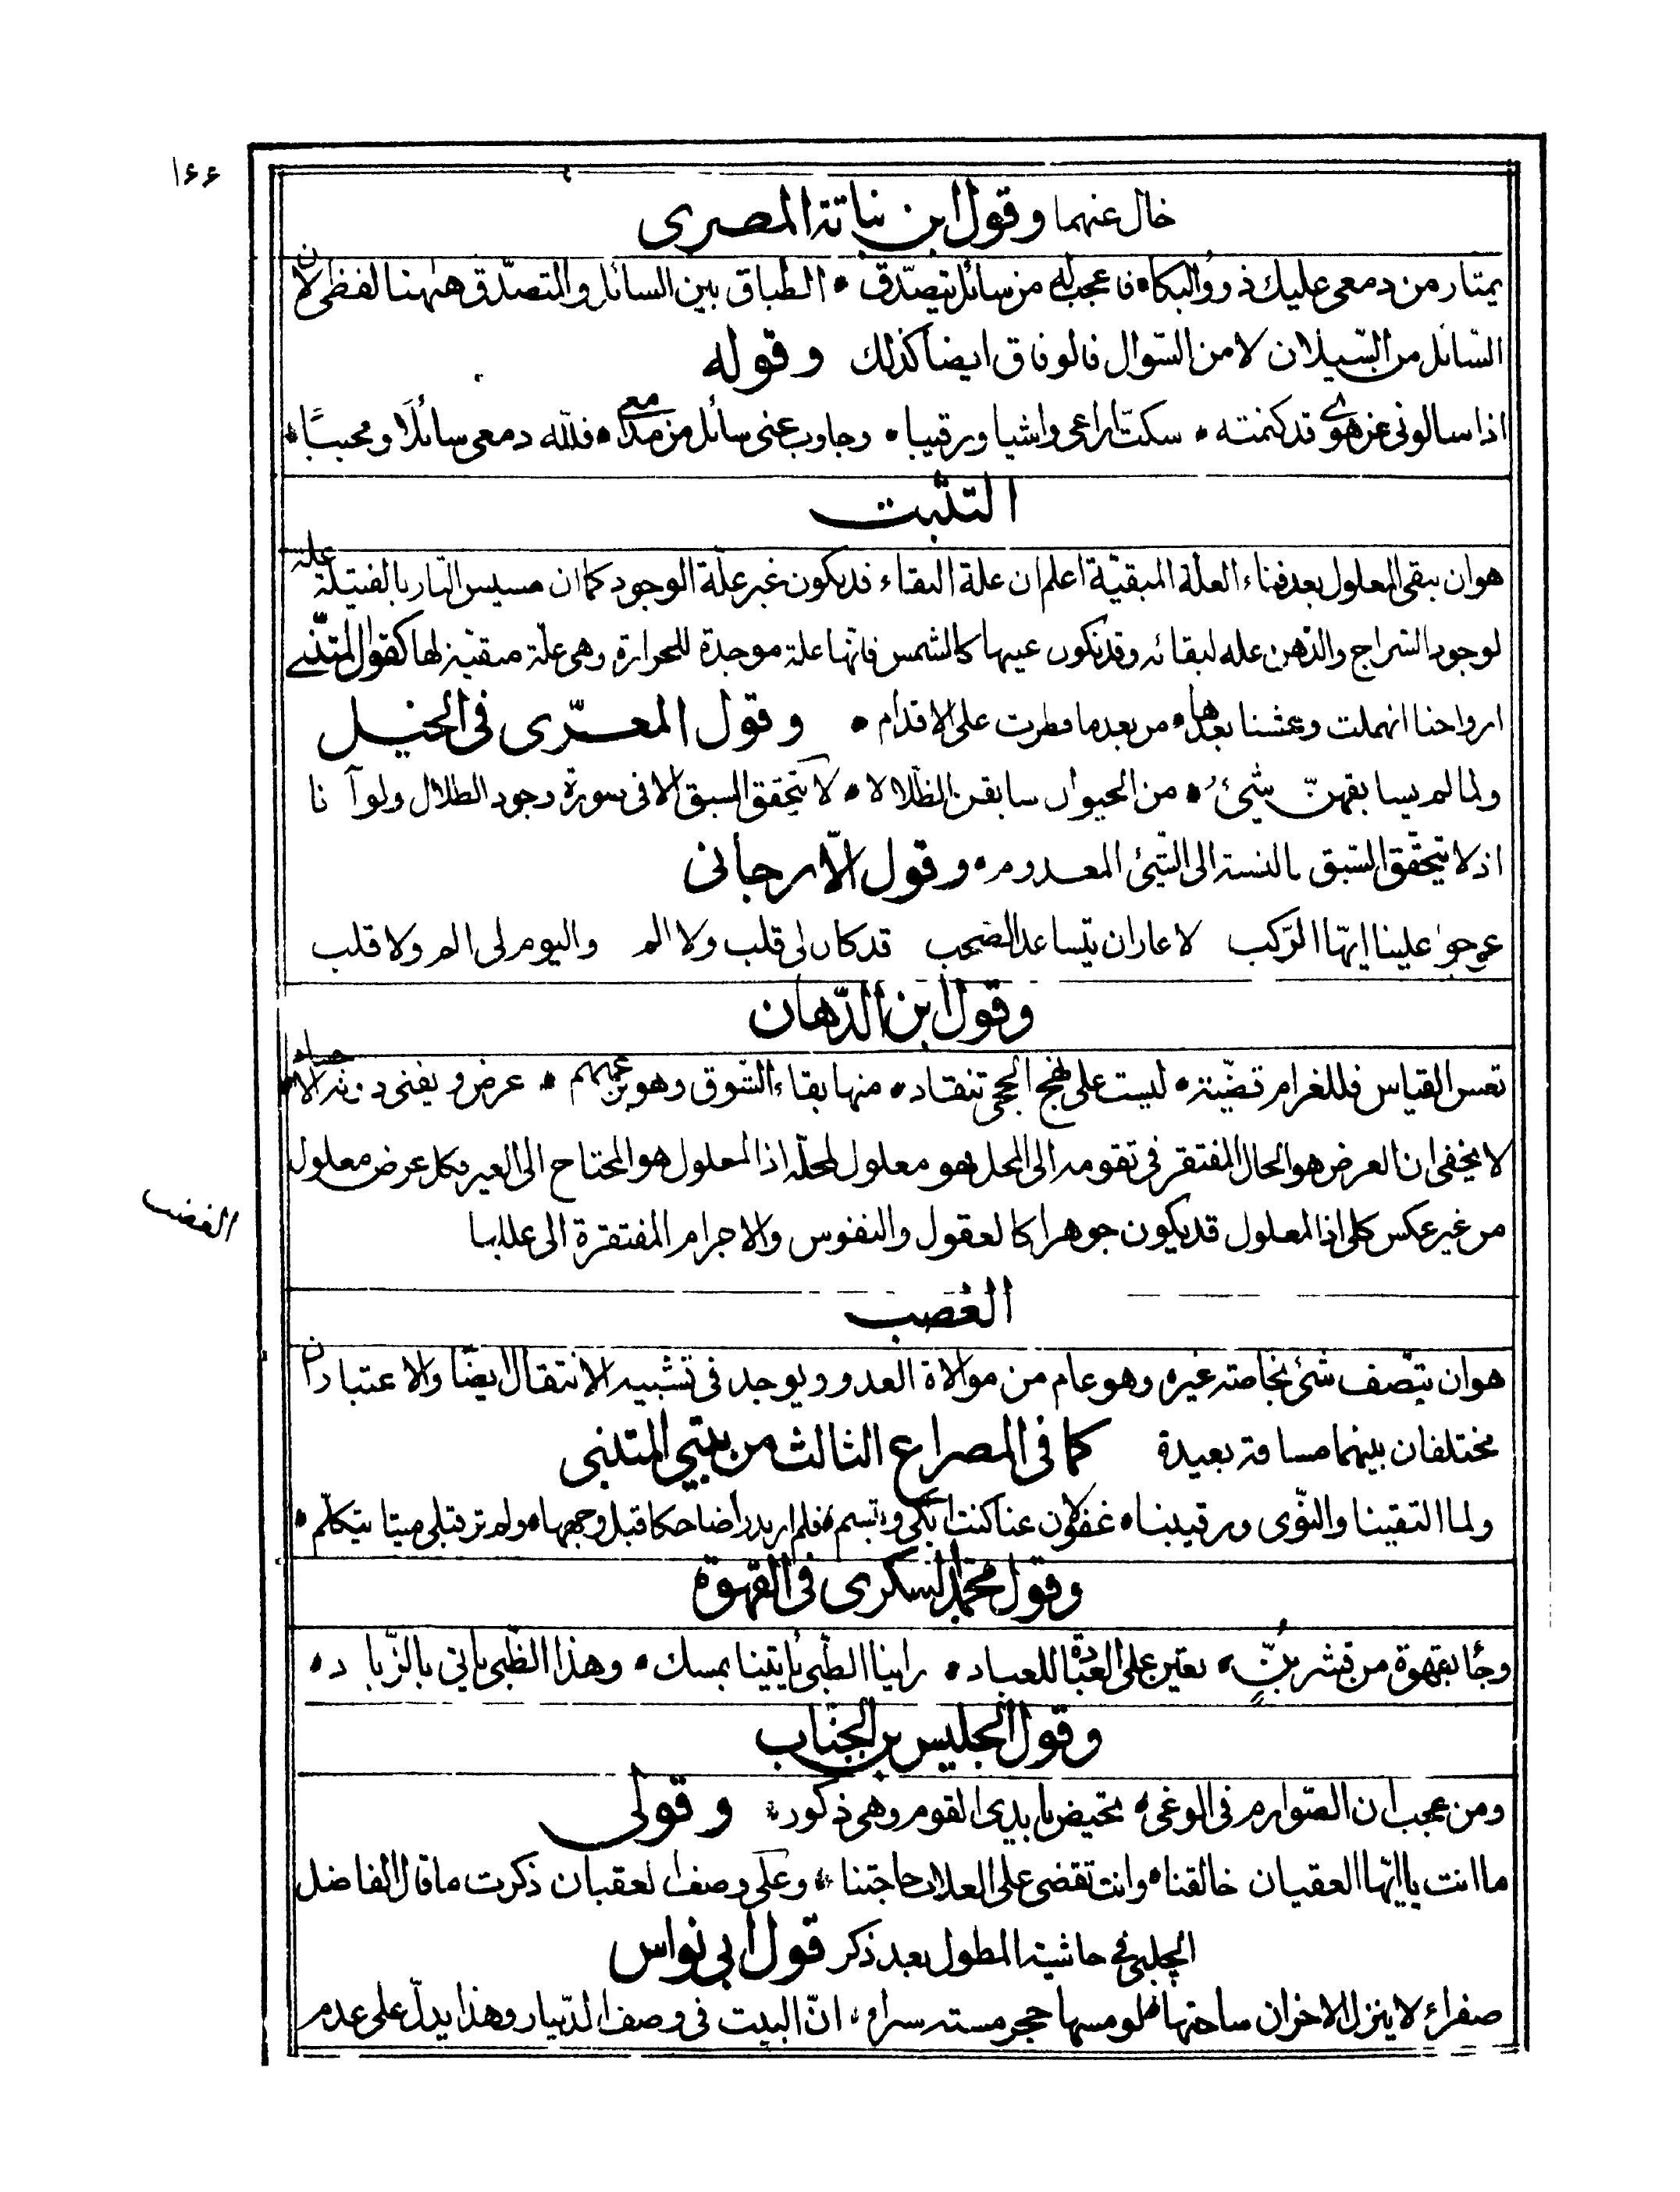 ١٦٦
خال عنهما وقول ابن نباتة المصرى
يمتار من دمعى عليك ذوو البكاء فاعجب له من سائل يتصدّق ٭ الطباق بين السائل والتصدّق ههنا لفظى لان
السّائل من السّيلان لا من السّوال فالوفاق ايضا كذلك وقوله
اذا سالونى عن هوى قد كتمته ٭ سكتّ اراعى واشيا ورقيبا ٭ وجاوب عنى سائل من مدامعى ٭ فلله دمعى سائلا ومجيبًا ٭
التثبت
هو ان يبقى المعلول بعد فناء العلة المبقيّة اعلم ان علة البقاء قد يكون غير علّة الوجود كما ان مسيس النار بالفتيلة علة
لوجود السّراج والدّهن علة لبقائه وقد تكون عينها كالشمس فانها علة موجدة للحرارة وهى علّة مبقيّة لها كقول المتنّبى
ارواحنا انهملت وعشنا بعدها ٭ من بعد ما قطرت على الاقدام ٭ وقول المعرّى فى الخيل
ولما لم يسابقهنّ شئ ٭ من الحيوان سابقن الظلالا ٭ لا يتحقق السبق الا فى صورة وجود الظلال ولو آنا
اذ لا يتحقّق السّبق بالنسبة الى الشّئ المعدوم ٭ وقول الارجانى
عوجوا علينا ايّها الرّكب لا عار ان يتساعد الصّحب قد كان لى قلب ولا الم واليوم لى الم ولا قلب
وقول ابن الدّهان
تعس القياس فللغرام قضّية ٭ ليست على نهج الحجى تنقاد ٭ منها بقاء الشّوق وهو بزعمهم ٭ عرض ويفنى دونه الاجساد
لا يخفى ان العرض هو الحال المفتقر فى تقومه الى المحل فهو معلول لمحلّه اذ المعلول هو المحتاج الى الغير فكل عرض معلول
من غير عكس كلى اذ المعلول قد يكون جوهرا كالعقول والنفوس والاجرام المفتقرة الى عللها
الغصب
الغصب
هو ان يتّصف شئ بخاصّة غيره وهو عام من موالاة العدو ويوجد فى تشبيه الانتقال ايضًا والاعتباران
مختلفان بينهما مسافة بعيدة كما فى المصراع الثالث من بيتي المتنبى
ولما التقينا والنّوى ورقيبنا ٭ غفولان عنا كنت ابكى وتبسم ٭ فلم ار بدرا ضاحكا قبل وجهها ٭ ولم تر قبلى ميتا يتكلّم ٭
وقول محمد السكرى فى القهوة
وجأ بقهوة من قشر بُنٍّ ٭ تعين على العبادة للعباد ٭ راينا الظّبى يأتينا بمسك ٭ وهذا الظّبى ياتى بالزّباد ٭
وقول الجليس بن الجبّاب
ومن عجب ان الصّوارم فى الوغى ٭ تحيض بايدى القوم وهى ذكور ٭ وقولى
ما انت يا ايّها العقيان خالقنا ٭ وانت تقضى على العلات حاجتنا ٭ وعلى وصف العقيان ذكرت ما قال الفاضل
الچلبى فى حاشية المطول بعد ذكر قول ابى نواس
صفراء لا ينزل الاحزان ساحتها ٭ لو مسها حجر مسته سراء ٭ انّ البيت فى وصف الدّينار وهذا يدلّ على عدم